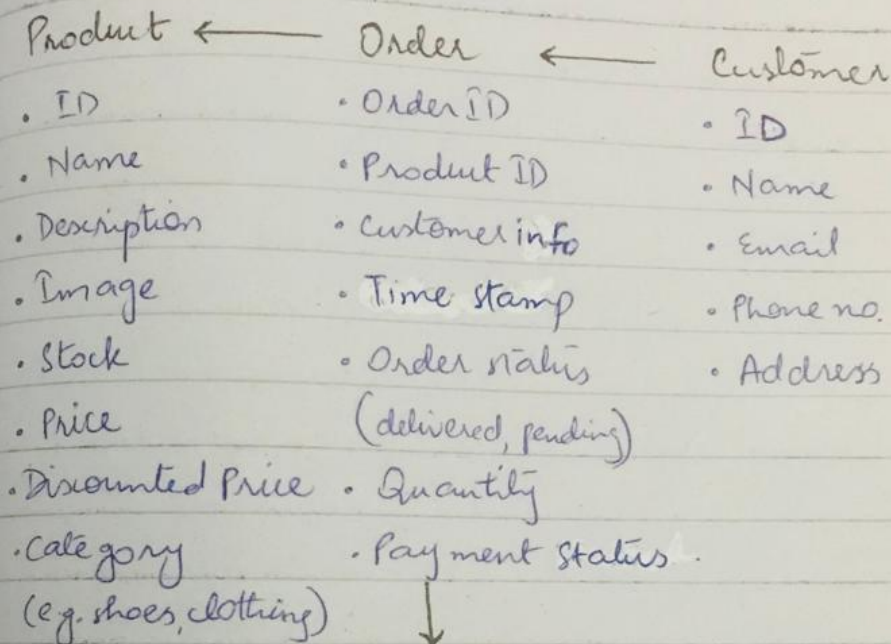 Product ← Order ← Customer
. ID
. Name
. Description
. Image
. Stock
. Price
. Discounted Price
. Category
(e.g. shoes, clothing)
• Order ID
• Product ID
• Customer info
• Time stamp
• Order status
(delivered, pending)
• Quantity
• Payment Status.
↓
• ID
• Name
• Email
• Phone no.
• Address